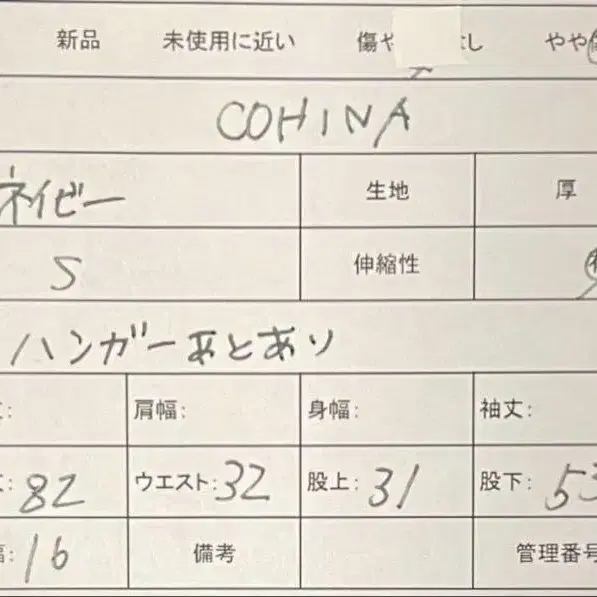 新品 未使用に近い 傷や し やや
COHINA
ネイビー 生地 厚
S 伸縮性
ハンガーあとあり
: 肩幅: 身幅: 袖丈:
: 82 ウエスト: 32 股上: 31 股下: 53
: 16 備考 管理番号